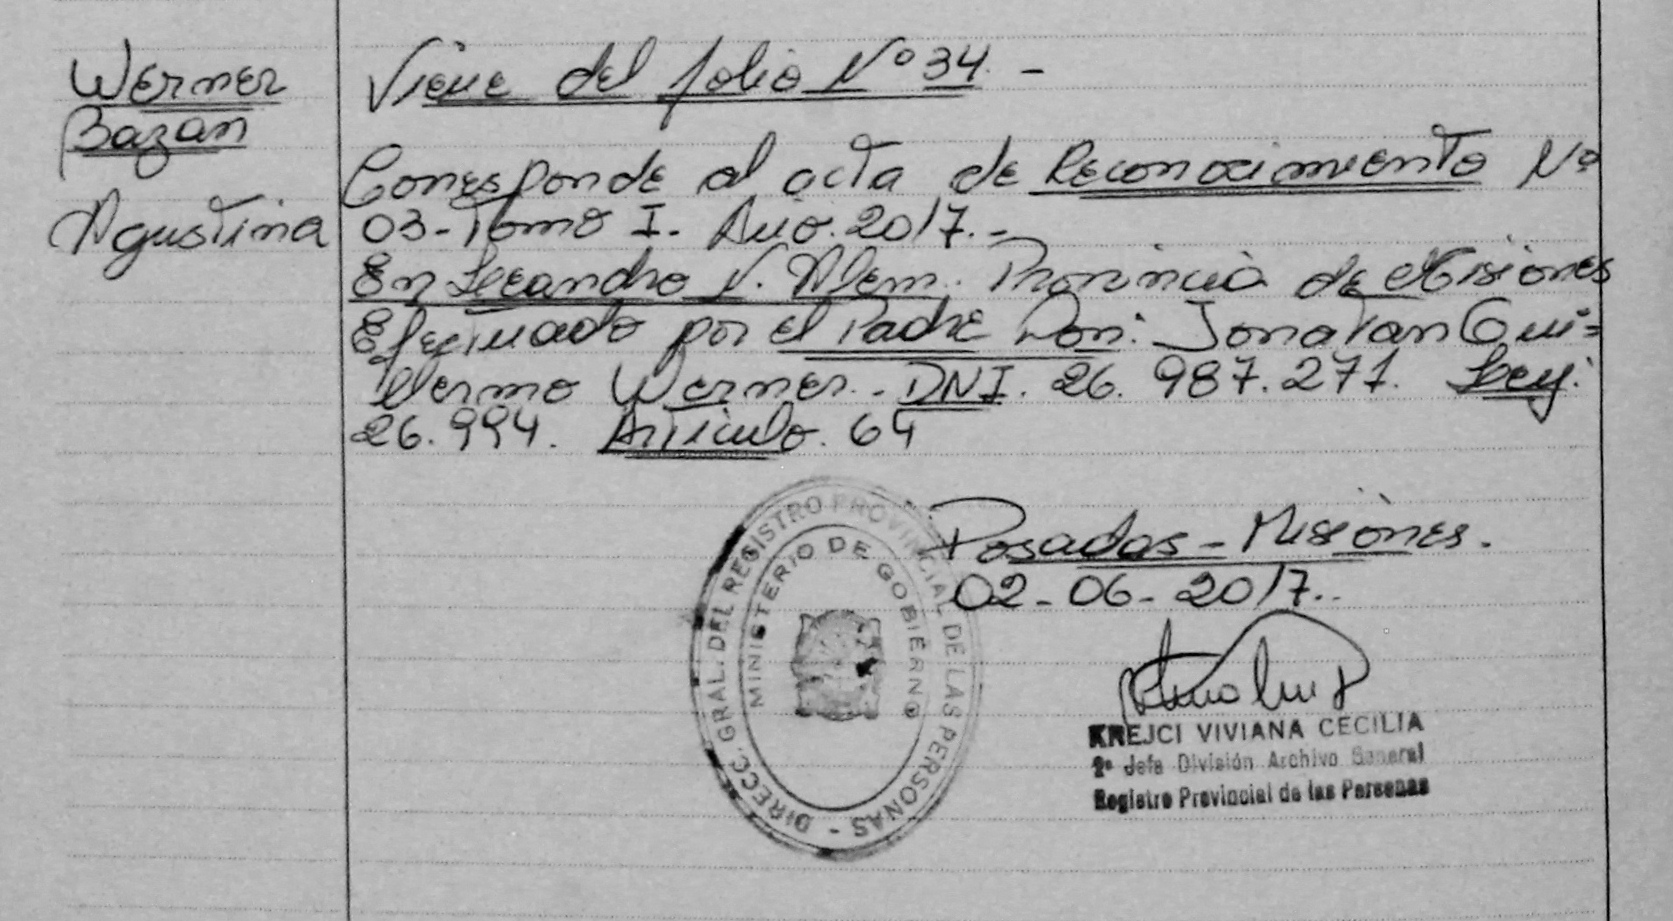 Werner
Bazan
Agustina
Viene del folio Nº 34. -
Corresponde al acta de Reconocimiento Nº
03 - Tomo I. Año. 2017. -
En Leandro N. Alem. Provincia de Misiones
Efectuado por el Padre Don: Jonatan Gui=
llermo Werner. DNI. 26.987.271. Ley:
26.994. Articulo. 64
Posadas - Misiones.
02 - 06 - 2017..
DIRECC. GRAL. DEL REGISTRO PROVINCIAL DE LAS PERSONAS -
MINISTERIO DE GOBIERNO
KREJCI VIVIANA CECILIA
2º Jefa División Archivo General
Registro Provincial de las Personas